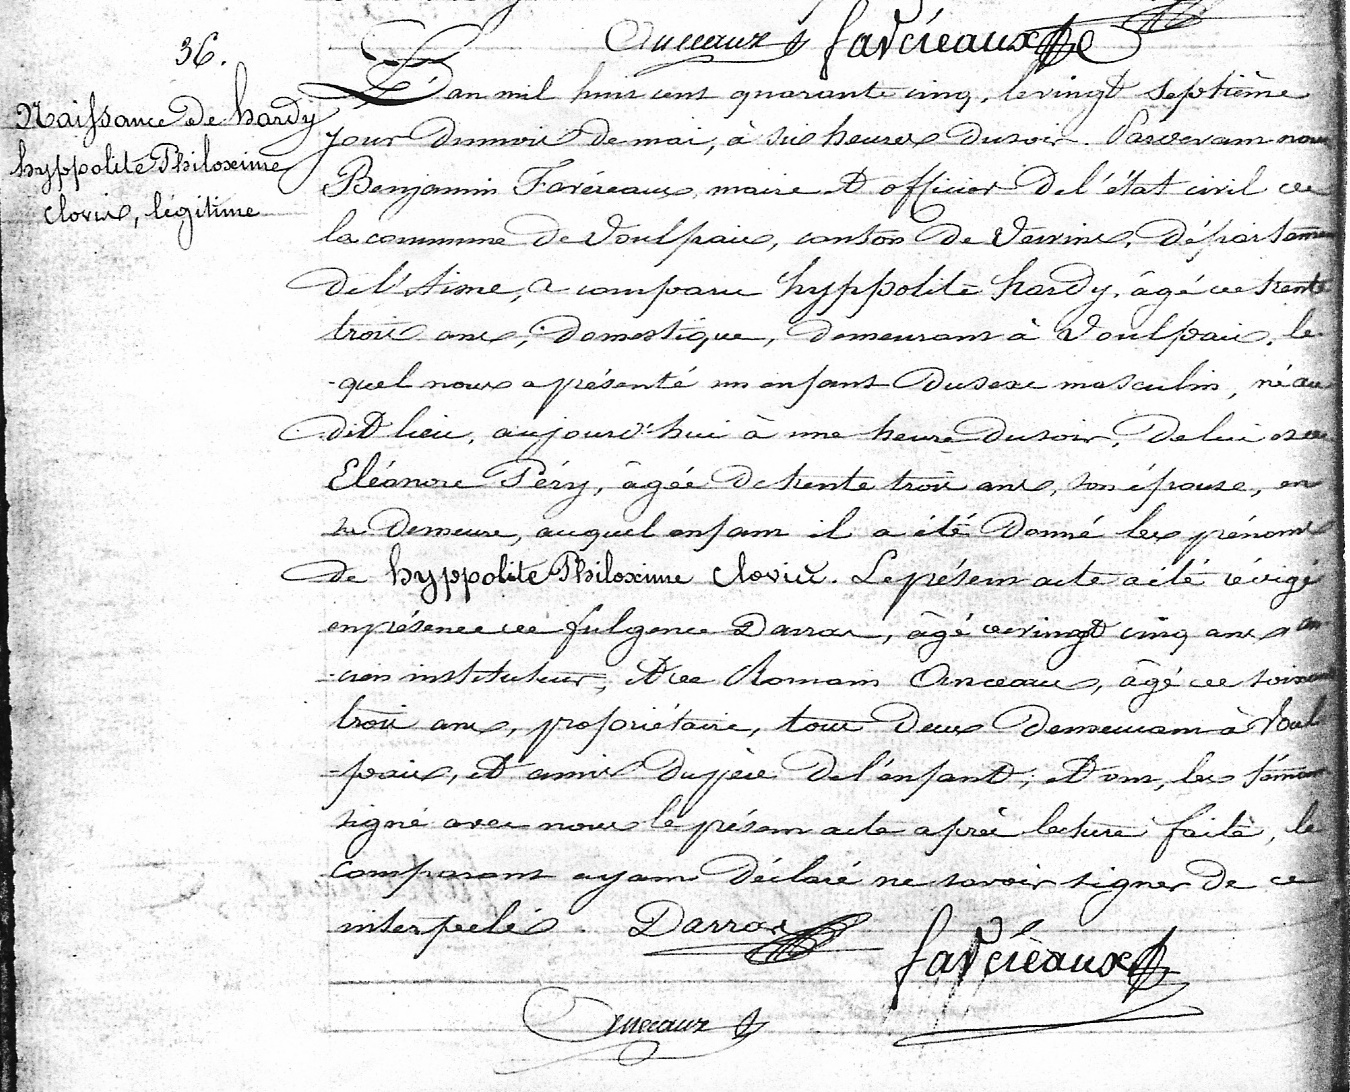 Onceaux favéreaux
36.
Naissance de hardy
hyppolite Philoxime
clovis, légitime
L'an mil huit cent quarante cinq, le vingt septième
jour du mois de mai, à six heures du soir. Pardevant nous
Benjamin Favéreaux, maire et officier de l'état civil de
la commune de Voulpaix, canton de Vervins, départemen
de l'Aisne, a comparu hyppolite hardy, âgé de trente
trois ans, domestique, demeurant à Voulpaix, le
-quel nous a présenté un enfant du sexe masculin, né au
dit lieu, aujourd'hui à une heure du soir, de lui et de
Eléonore Péry, âgée de trente trois ans, son épouse, en
sa demeure, auquel enfant il a été donné les prénoms
de hyppolite Philoxime clovis. Le présent acte a été rédigé
en présence de fulgence Darras, âgé de vingt cinq ans, an
-cien instituteur, et de Romain Onceaux, âgé de soixante
trois ans, propriétaire, tous deux demeurant à Voul
-paix, et amis du père de l'enfant; et ont, les témoins
signé avec nous le présent acte après lecture faite, le
comparant ayant déclaré ne savoir signer de ce
interpelé. Darras favéreaux
Onceaux